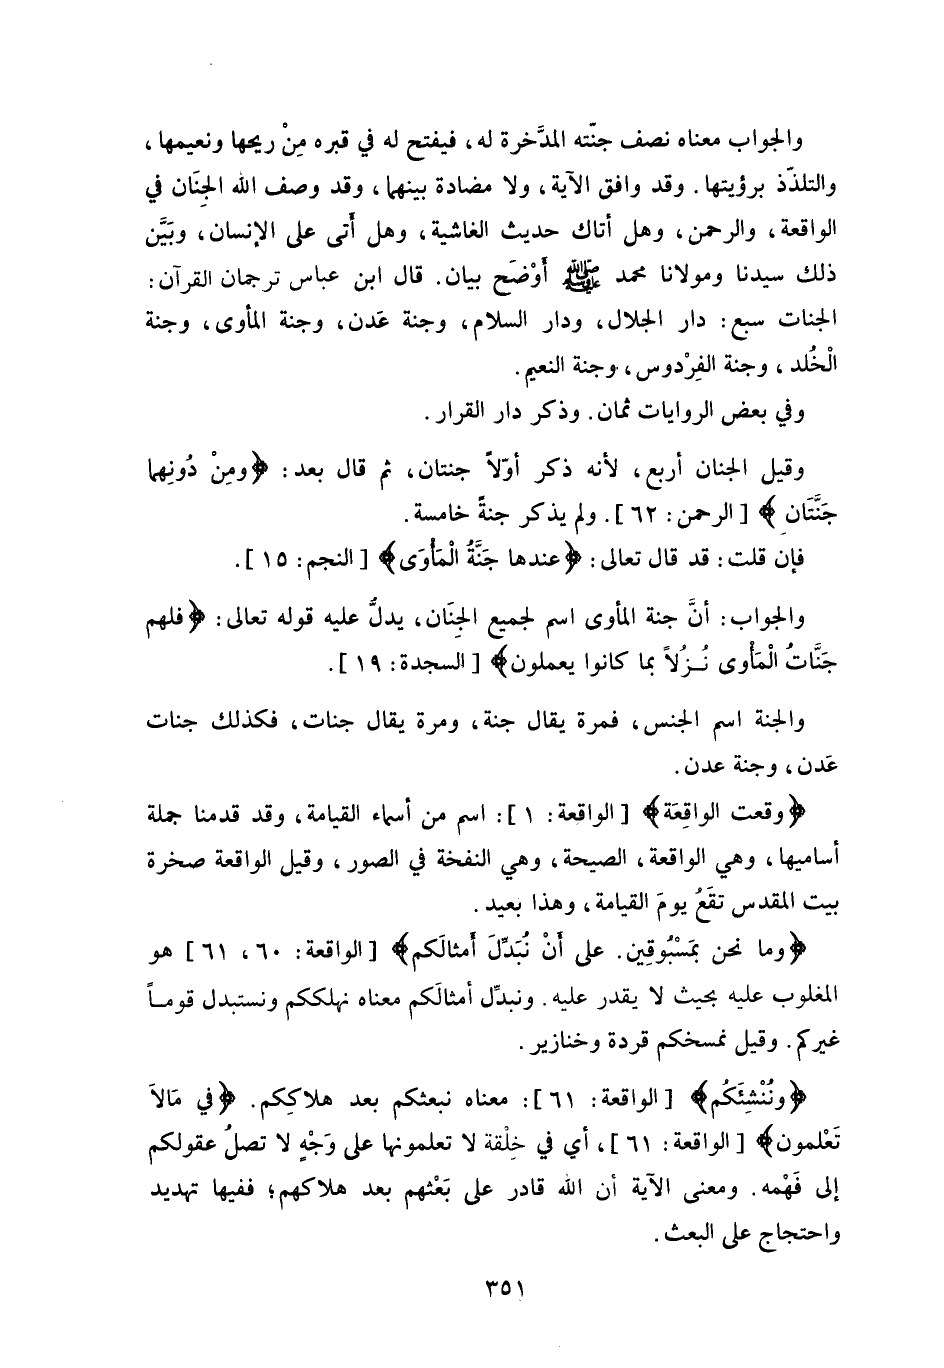 والجواب معناه نصف جنّته المدَّخرة له، فيفتح له في قبره مِنْ ريحها ونعيمها،
والتلذّذ برؤيتها. وقد وافق الآية، ولا مضادة بينهما، وقد وصف الله الجِنَان في
الواقعة، والرحمن، وهل أتاك حديث الغاشية، وهل أَتى على الإنسان، وبَيَّن
ذلك سيدنا ومولانا محمد ﷺ أَوْضَح بيان. قال ابن عباس ترجمان القرآن:
الجنات سبع: دار الجلال، ودار السلام، وجنة عَدن، وجنة المأوى، وجنة
الْخُلد، وجنة الفِرْدوس، وجنة النعيم.
وفي بعض الروايات ثمان. وذكر دار القرار.
وقيل الجنان أربع، لأنه ذكر أوّلاً جنتان، ثم قال بعد: ﴿ومِنْ دُونِهما
جَنَّتَانِ﴾ [الرحمن: ٦٢]. ولم يذكر جنةً خامسة.
فإن قلت: قد قال تعالى: ﴿عندها جَنَّةُ الْمَأْوَى﴾ [النجم: ١٥].
والجواب: أنَّ جنة المأوى اسم لجميع الجِنَان، يدلُّ عليه قوله تعالى: ﴿فلهم
جَنَّاتُ الْمَأْوى نُــزُلاً بما كانوا يعملون﴾ [السجدة: ١٩].
والجنة اسم الجنس، فمرة يقال جنة، ومرة يقال جنات، فكذلك جنات
عَدن، وجنة عدن.
﴿وقعت الواقِعَة﴾ [الواقعة: ١]: اسم من أسماء القيامة، وقد قدمنا جملة
أساميها، وهي الواقعة، الصيحة، وهي النفخة في الصور، وقيل الواقعة صخرة
بيت المقدس تقَعُ يومَ القيامة، وهذا بعيد.
﴿وما نحن بمَسْبُوقِين. على أَنْ نُبَدِّلَ أمثالَكم﴾ [الواقعة: ٦٠، ٦١] هو
المغلوب عليه بحيث لا يقدر عليه. ونبدِّل أمثالَكم معناه نهلككم ونستبدل قومــاً
غيركم. وقيل نمسخكم قردة وخنازير.
﴿ونُنْشِئَكُم﴾ [الواقعة: ٦١]: معناه نبعثكم بعد هلاكِكم. ﴿في مَالاَ
تَعْلمون﴾ [الواقعة: ٦١]، أي في خِلْقة لا تعلمونها على وَجْهٍ لا تصلُ عقولكم
إلى فَهْمه. ومعنى الآية أن الله قادر على بَعْثهم بعد هلاكهم؛ ففيها تهديد
واحتجاج على البعث.
٣٥١